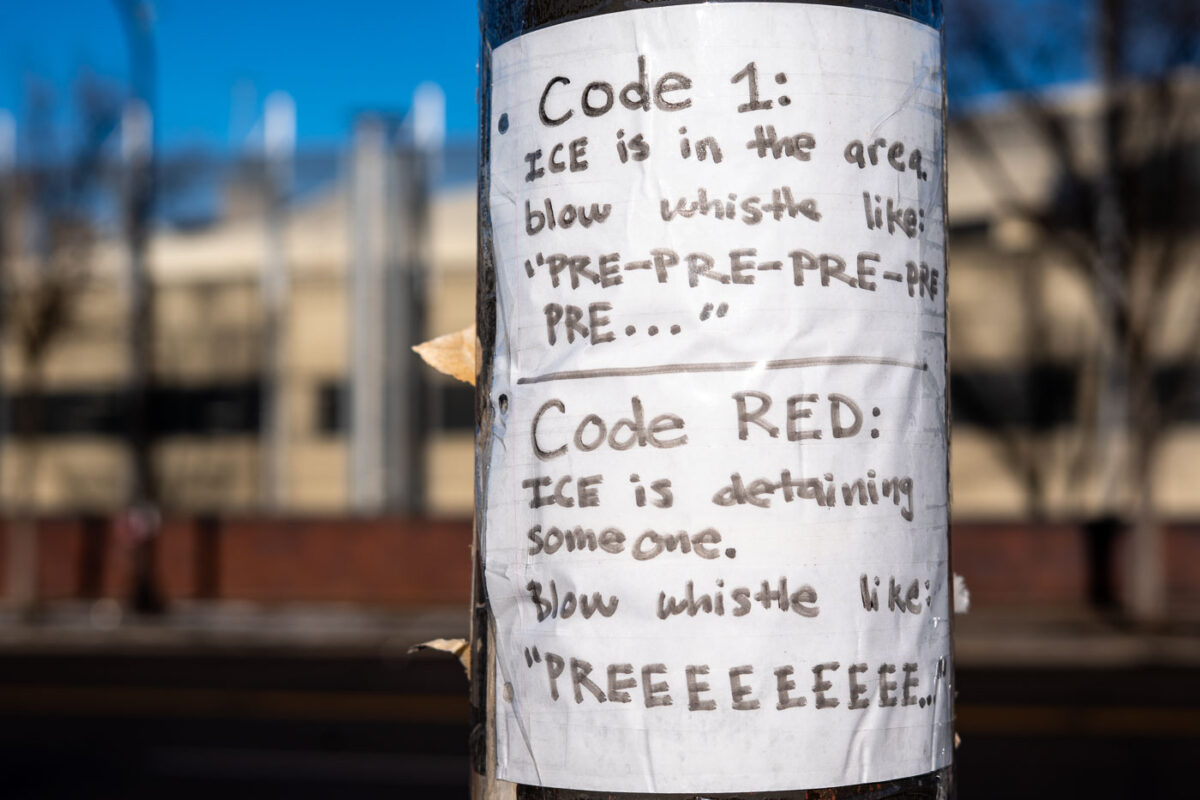 Code 1:
ICE is in the area.
blow whistle like:
"PRE-PRE-PRE-PRE
PRE... "
Code RED:
ICE is detaining
someone.
Blow whistle like:
"PREEEEEEEEE..."